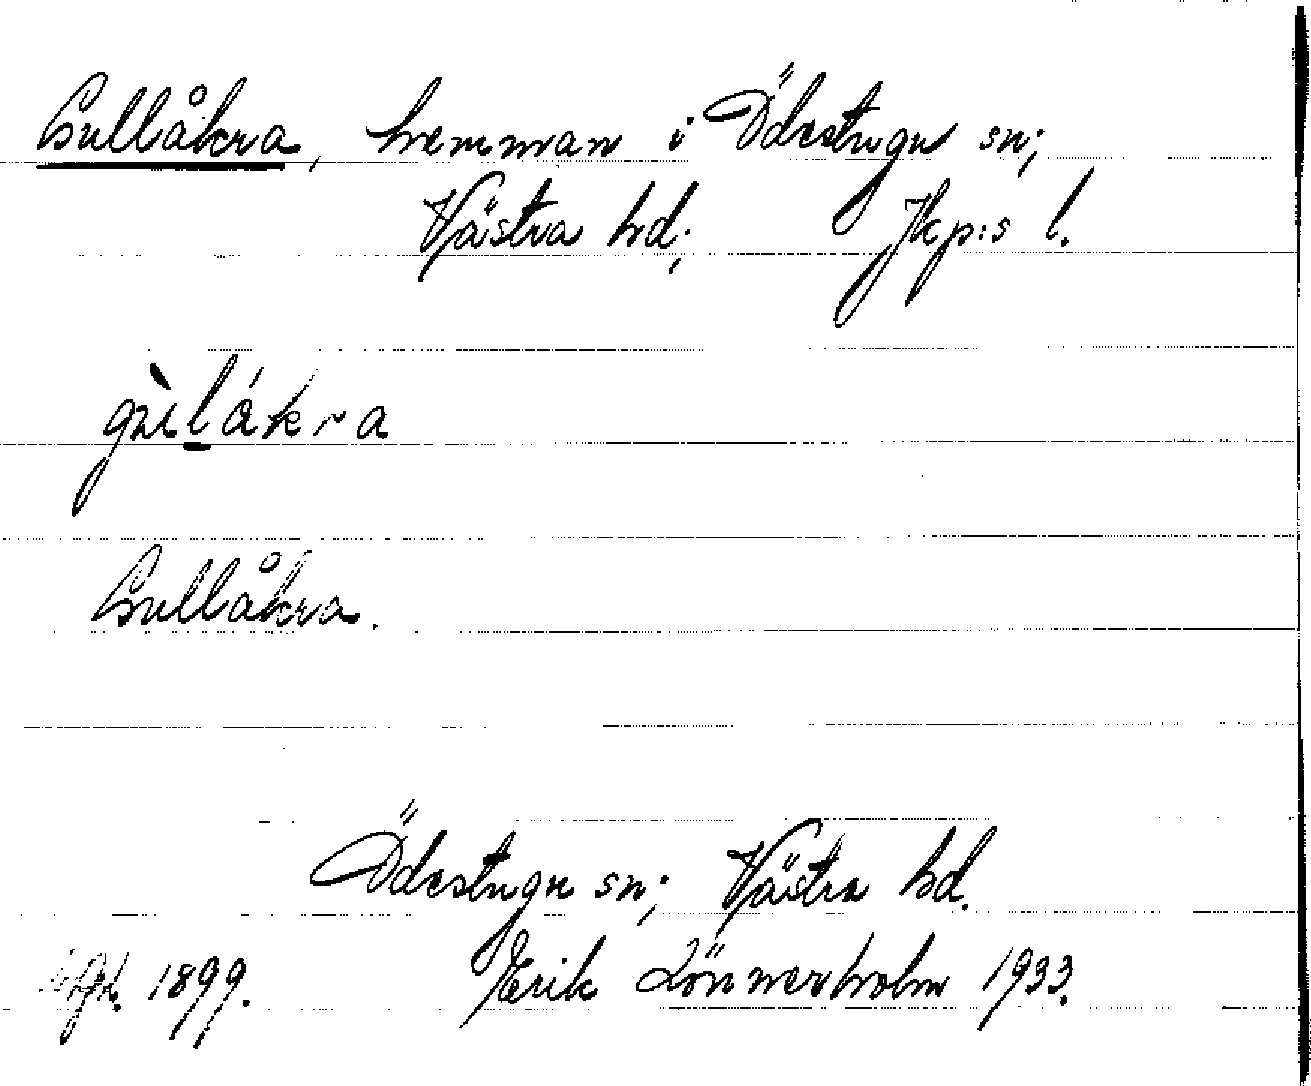 Gullåkra, hemman i Ödestugu sn;
Västra hd; Jkp:s l.
gùlákra
Gullåkra.
Ödestugu sn; Västra hd.
1899. Erik Lönnerholm 1933.